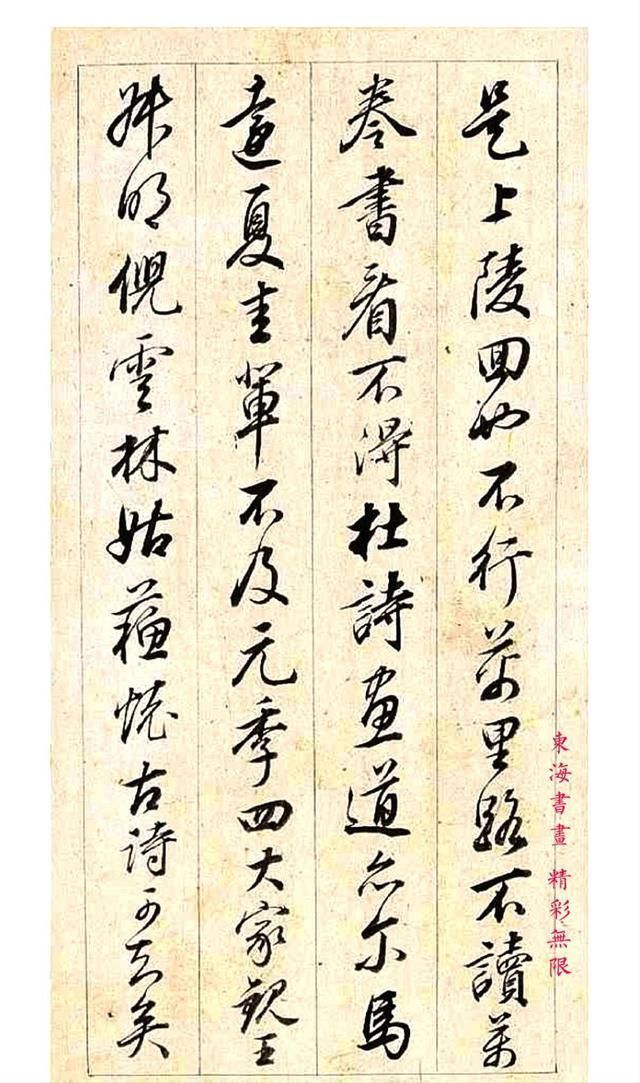 是上陵回不行萬里路不讀萬
卷書看不得杜詩畫道亦尔馬
遠夏圭輩不及元季四大家觀王
叔明倪雲林姑蘇懷古詩可知矣
東海書畫 精彩無限